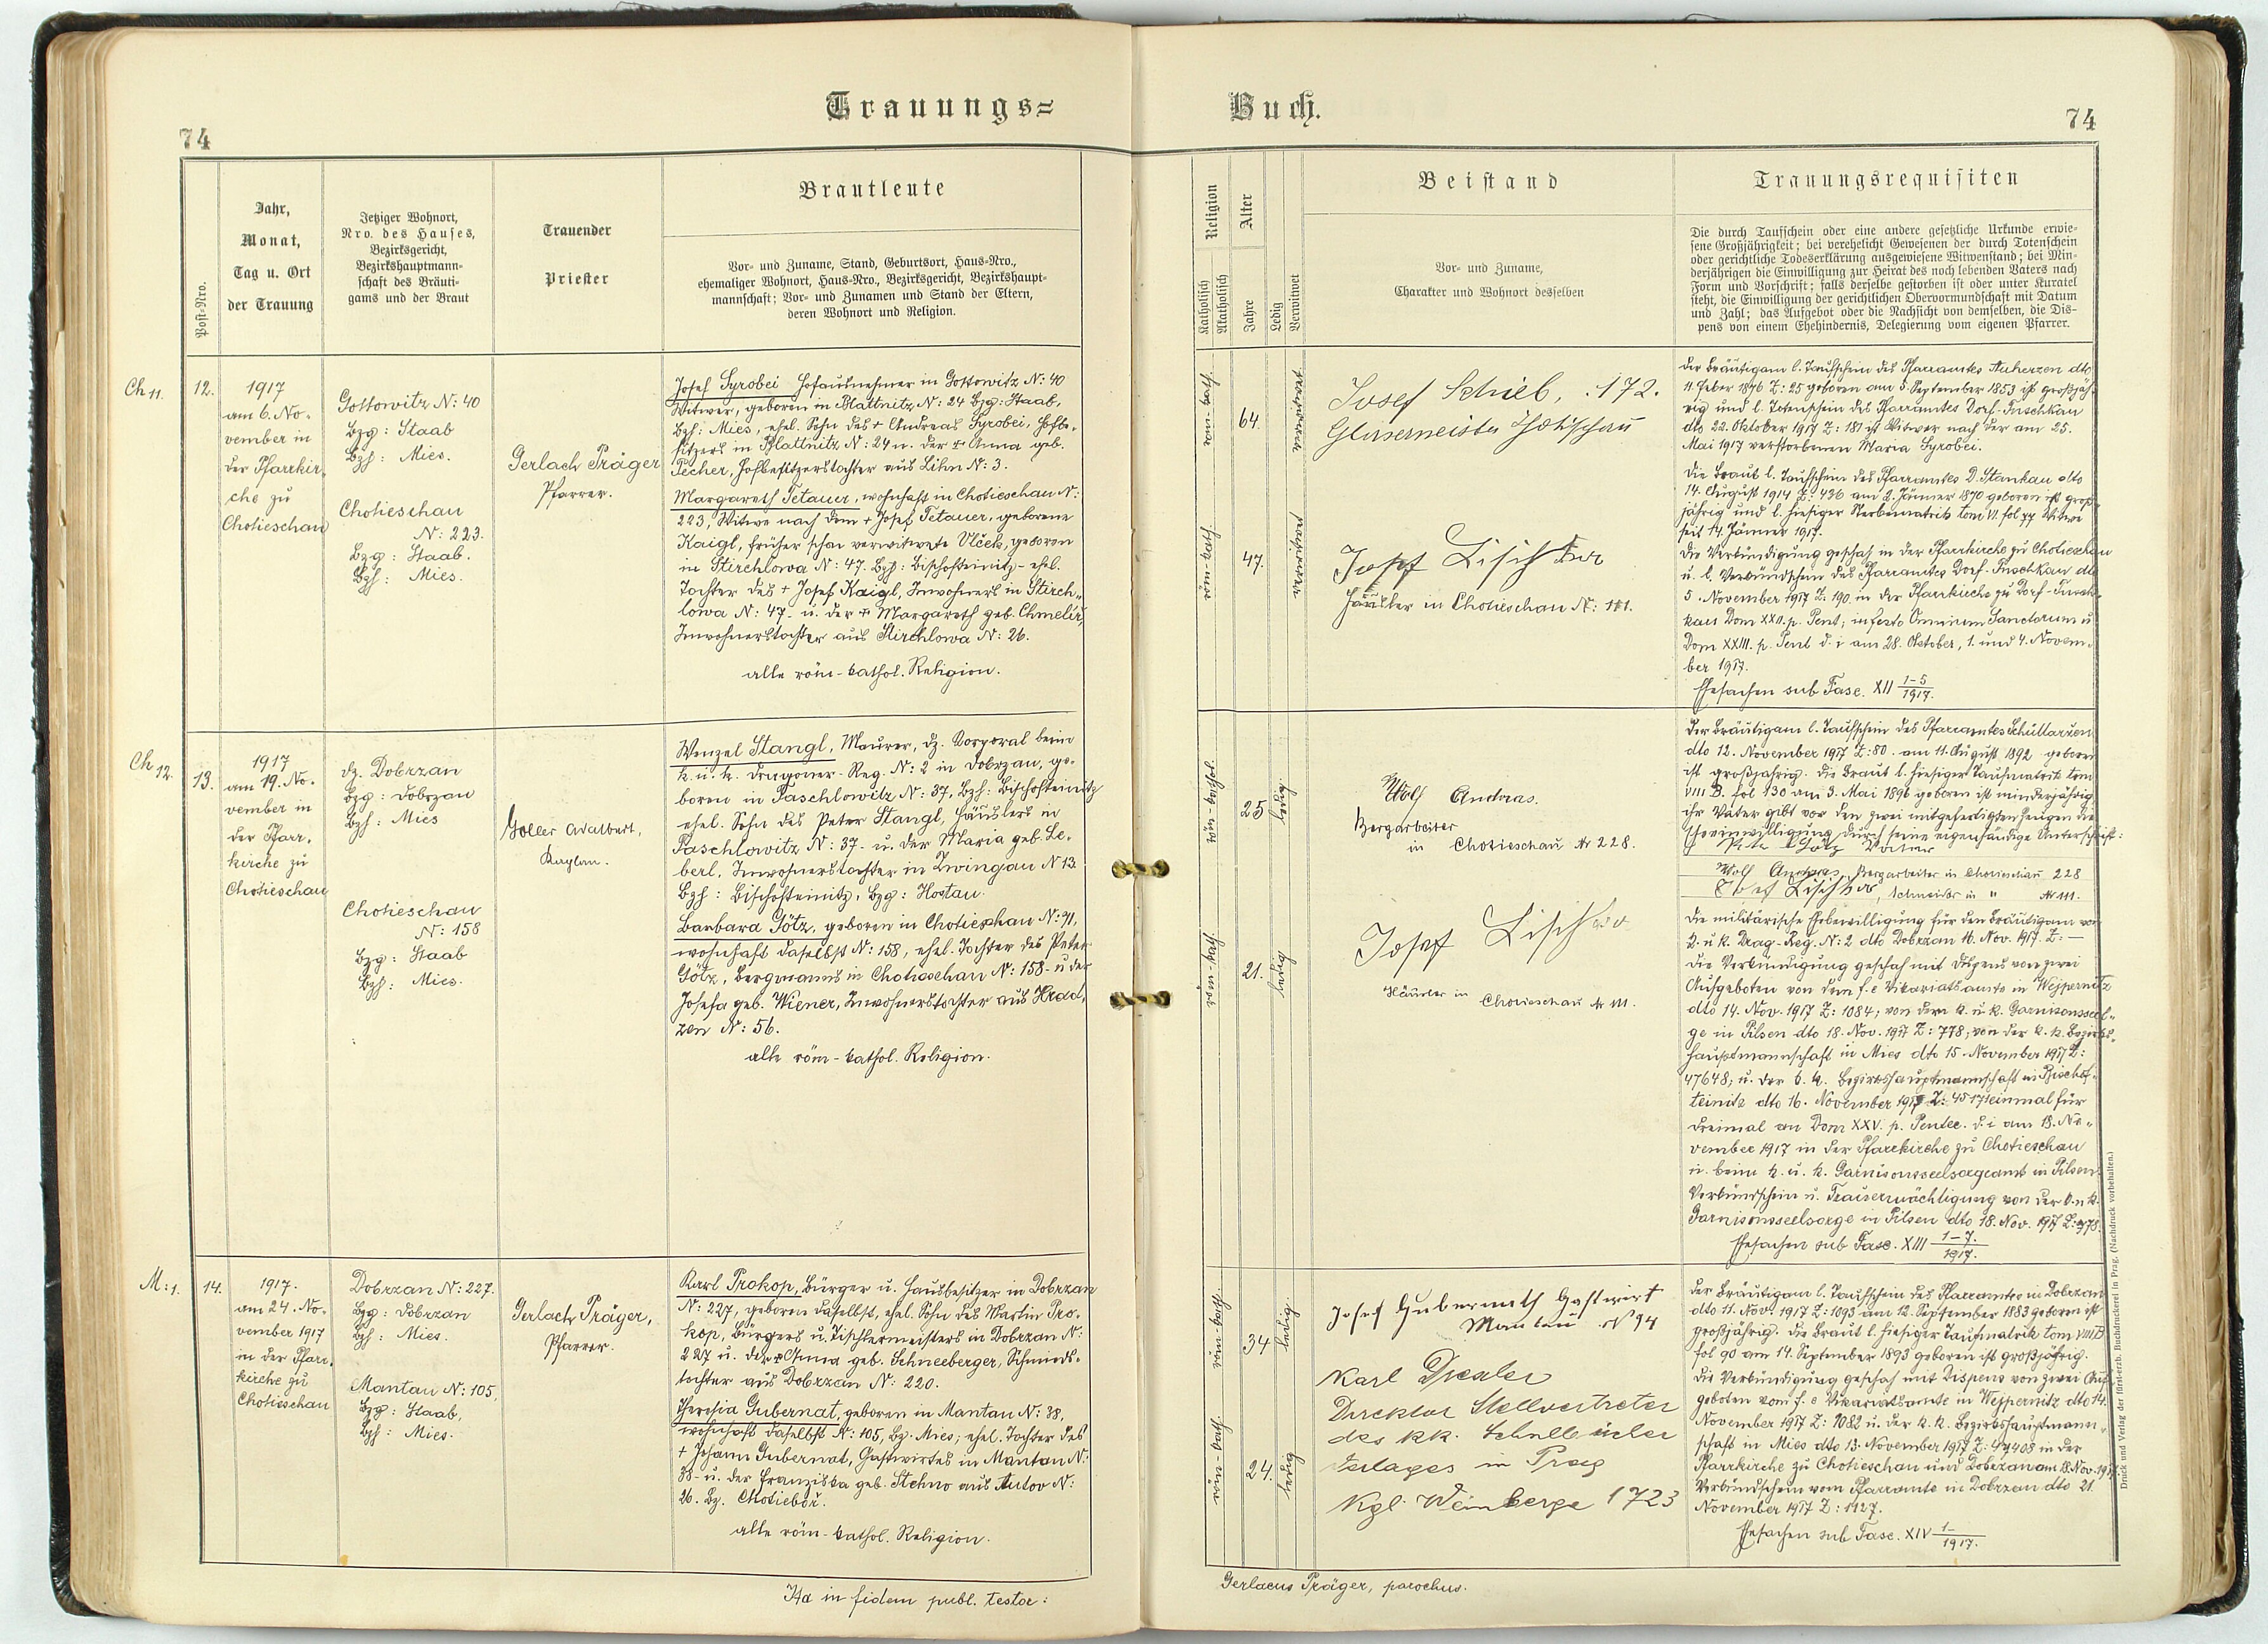 Trauungs=
Buch.
74
74
Post-Nro.
Jahr,
Monat,
Tag u. Ort
der Trauung
Jetziger Wohnort,
Nro. des Hauses,
Bezirksgericht,
Bezirkshauptmann-
schaft des Bräuti-
gams und der Braut
Trauender
Priester
Brautleute
Vor- und Zuname, Stand, Geburtsort, Haus-Nro.,
ehemaliger Wohnort, Haus-Nro., Bezirksgericht, Bezirkshaupt-
mannschaft; Vor- und Zunamen und Stand der Eltern,
deren Wohnort und Religion.
Religion
Katholisch
Akatholisch
Alter
Jahre
Ledig
Verwitwet
Beistand
Vor- und Zuname,
Charakter und Wohnort desselben
Trauungsrequisiten
Die durch Taufschein oder eine andere gesetzliche Urkunde erwie-
sene Großjährigkeit; bei verehelicht Gewesenen der durch Totenschein
oder gerichtliche Todeserklärung ausgewiesene Witwenstand; bei Min-
derjährigen die Einwilligung zur Heirat des noch lebenden Vaters nach
Form und Vorschrift; falls derselbe gestorben ist oder unter Kuratel
steht, die Einwilligung der gerichtlichen Obervormundschaft mit Datum
und Zahl; das Aufgebot oder die Nachsicht von demselben, die Dis-
pens von einem Ehehindernis, Delegierung vom eigenen Pfarrer.
Ch 11.
12.
1917
am 6. No-
vember in
der Pfarrkir-
che zu
Chotieschau
Gottowitz N: 40
Bzg: Staab
Bzh: Mies.
Chotieschau
N: 223.
Bzg: Staab.
Bzh: Mies.
Gerlach Präger
Pfarrer.
Josef Syrobei Hofausnehmer in Gottowitz N: 40
Witwer, geboren in Blattnitz N: 24 Bzg: Staab,
Bzh: Mies, ehel. Sohn des + Andreas Syrobei, Hofbe-
sitzers in Blattnitz N: 24 u. der + Anna geb.
Pecher, Hofbesitzerstochter aus Lihn N: 3.
Margareth Tetauer, wohnhaft in Chotieschau N:
223, Witwe nach dem + Josef Tetauer, geborene
Kaigl, früher schon verwitwete Vlček, geboren
in Stirchlowa N: 47. Bzh: Bischofteinitz - ehel.
Tochter des + Josef Kaigl, Inwohners in Stirch-
lowa N: 47. u. der + Margareth geb. Chmelíř,
Inwohnerstochter aus Stirchlowa N: 26.
alle röm-kathol. Religion.
röm-kath.
64.
verwitwet
röm-kath.
47.
verwitwet
Josef Schieb, 172.
Glasermeister
Josef Lischker
Häusler in Chotieschau N: 111.
Der Bräutigam l. Taufschein des Pfarramtes Auherzen dto
11. Feber 1876 Z: 25 geboren am 5. September 1853 ist großjäh-
rig und l. Totenschein des Pfarramtes Dorf-Tuschkau
dto 22. Oktober 1917 Z: 181 ist Witwer nach der am 25.
Mai 1917 verstorbenen Maria Syrobei.
Die Braut l. Taufschein des Pfarramtes D. Stankau dto
14. August 1914 Z: 436 am 2. Jänner 1870 geboren ist groß-
jährig und l. hiesiger Sterbematrik tom VI. fol 77 Witwe
seit 14. Jänner 1917.
Die Verkündigung geschah in der Pfarrkirche zu Chotieschau
u. l. Verkündschein des Pfarramtes Dorf-Tuschkau dto
5. November 1917 Z: 190. in der Pfarrkirche zu Dorf-Tusch-
kau Dom XXII. p. Pent; in festo Omnium Sanctorum u
Dom XXIII. p. Pent d. i am 28. Oktober, 1. und 4. Novem-
ber 1917.
Ehesachen sub Fasc. XII 1-5
1917.
Ch 12.
13.
1917
am 19. No-
vember in
der Pfarr-
kirche zu
Chotieschau
dz. Dobrzan
Bzg: Dobrzan
Bzh: Mies
Chotieschau
N: 158
Bzg: Staab
Bzh: Mies.
Goller Adalbert,
Kaplan.
Wenzel Stangl, Maurer, dz. Korporal beim
k. u. k. Dragoner-Reg. N: 2 in Dobrzan, ge-
boren in Taschlowitz N: 37. Bzh: Bischofteinitz
ehel. Sohn des Peter Stangl, Häuslers in
Taschlowitz N: 37. u. der Maria geb. Le-
berl, Inwohnerstochter in Zwingau N 13.
Bzh: Bischofteinitz, Bzg: Hostau.
Barbara Götz, geboren in Chotieschau N: 91,
wohnhaft daselbst N: 158, ehel. Tochter des Peter
Götz, Bergmanns in Chotieschau N: 158 - u der
Josefa geb. Wiener, Inwohnerstochter aus Hrad-
zen N: 56.
alle röm-kathol. Religion.
röm-kathol.
25
ledig
röm-kath.
21.
ledig
Wolf Andras.
Bergarbeiter
in Chotieschau N 228.
Josef Lischker
Häusler in Chotieschau N 111.
Der Bräutigam l. Taufschein des Pfarramtes Schüttarzen
dto 12. November 1917 Z: 80. am 11. August 1892 geboren
ist großjährig. Die Braut l. hiesiger Taufmatrik tom
VIII B. fol 130 am 3. Mai 1896 geboren ist minderjährig
ihr Vater gibt vor den zwei mitgefertigten Zeugen die
Eheeinwilligung durch seine eigenhändige Unterschrift:
Götz
Wolf Andras, Bergarbeiter in Chotieschau 228
Josef Lischker, Schneider in " N 111.
Die militärische Ehebewilligung für den Bräutigam vom
k. u k. Drag. Reg. N: 2 dto Dobrzan 16. Nov. 1917. Z: —
Die Verkündigung geschah mit Dispens von zwei
Aufgeboten von dem f. e Vikariatsamte in Wejpernitz
dto 14. Nov. 1917 Z: 1084; von dem k. u k. Garnisonsseel-
ge in Pilsen dto 18. Nov. 1917 Z: 778; von der k. k. Bezirks-
hauptmannschaft in Mies dto 15. November 1917 Z:
47648; u. der k. k. Bezirkshauptmannschaft in Bischof-
teinitz dto 16. November 1917 Z: einmal für
dreimal an Dom XXV. p. Pentec. d. i am 18. No-
vember 1917 in der Pfarrkirche zu Chotieschau
u. beim k. u. k. Garnisonsseelsorgeamt in Pilsen.
Verkündschein u. Trauermächtigung von der k. u k.
Garnisonsseelsorge in Pilsen dto 18. Nov. 1917 Z: 778.
Ehesachen sub Fasc. XIII 1-7.
1917.
M: 1.
14.
1917.
am 24. No-
vember 1917
in der Pfarr-
kirche zu
Chotieschau
Dobrzan N: 227.
Bzg: Dobrzan
Bzh: Mies.
Mantau N: 105,
Bzg: Staab,
Bzh: Mies.
Gerlach Präger,
Pfarrer.
Karl Prokop, Bürger u. Hausbesitzer in Dobrzan
N: 227, geboren daselbst, ehel. Sohn des Martin Pro-
kop, Bürgers u. Tischlermeisters in Dobrzan N:
227 u. der + Anna geb. Schneeberger, Schmieds-
tochter aus Dobrzan N: 220.
Theresia Gubernat, geboren in Mantau N: 38,
wohnhaft daselbst N: 105, Bz. Mies; ehel. Tochter des
+ Johann Gubernat, Gastwirtes in Mantau N:
38 - u. der Franziska geb. Stehno aus Autov N:
26. Bz. Chotieboř.
alle röm-kathol. Religion.
röm-kath.
34
ledig.
röm-kath.
24.
ledig
Josef Gubernath Gastwirt
Mantau N 94
Karl
Direktor Stellvertreter
des kk. Schulbücher
Verlages in Prag
Kgl. Weinberge 1723
Der Bräutigam l. Taufschein des Pfarramtes in Dobrzan
dto 11. Nov. 1917 Z: 1093 am 12. September 1883 geboren ist
großjährig. Die Braut l. hiesiger Taufmatrik tom VIII B
fol 90 am 14. September 1893 geboren ist großjährig.
Die Verkündigung geschah mit Dispens von zwei Auf-
geboten vom f. e Vikariatsamte in Wejpernitz dto 14.
November 1917 Z: 1082 u. der k. k. Bezirkshauptmann-
schaft in Mies dto 13. November 1917 Z: 47408 in der
Pfarrkirche zu Chotieschau und Dobrzan am 18. Nov. 1917.
Verkündschein vom Pfarramte in Dobrzan dto 21.
November 1917 Z: 1127.
Ehesachen sub Fasc. XIV 1-
1917.
Ita in fidem publ. testor:
Gerlacus Präger, parochus.
Druck und Verlag der fürst-erzb. Buchdruckerei in Prag. (Nachdruck vorbehalten.)